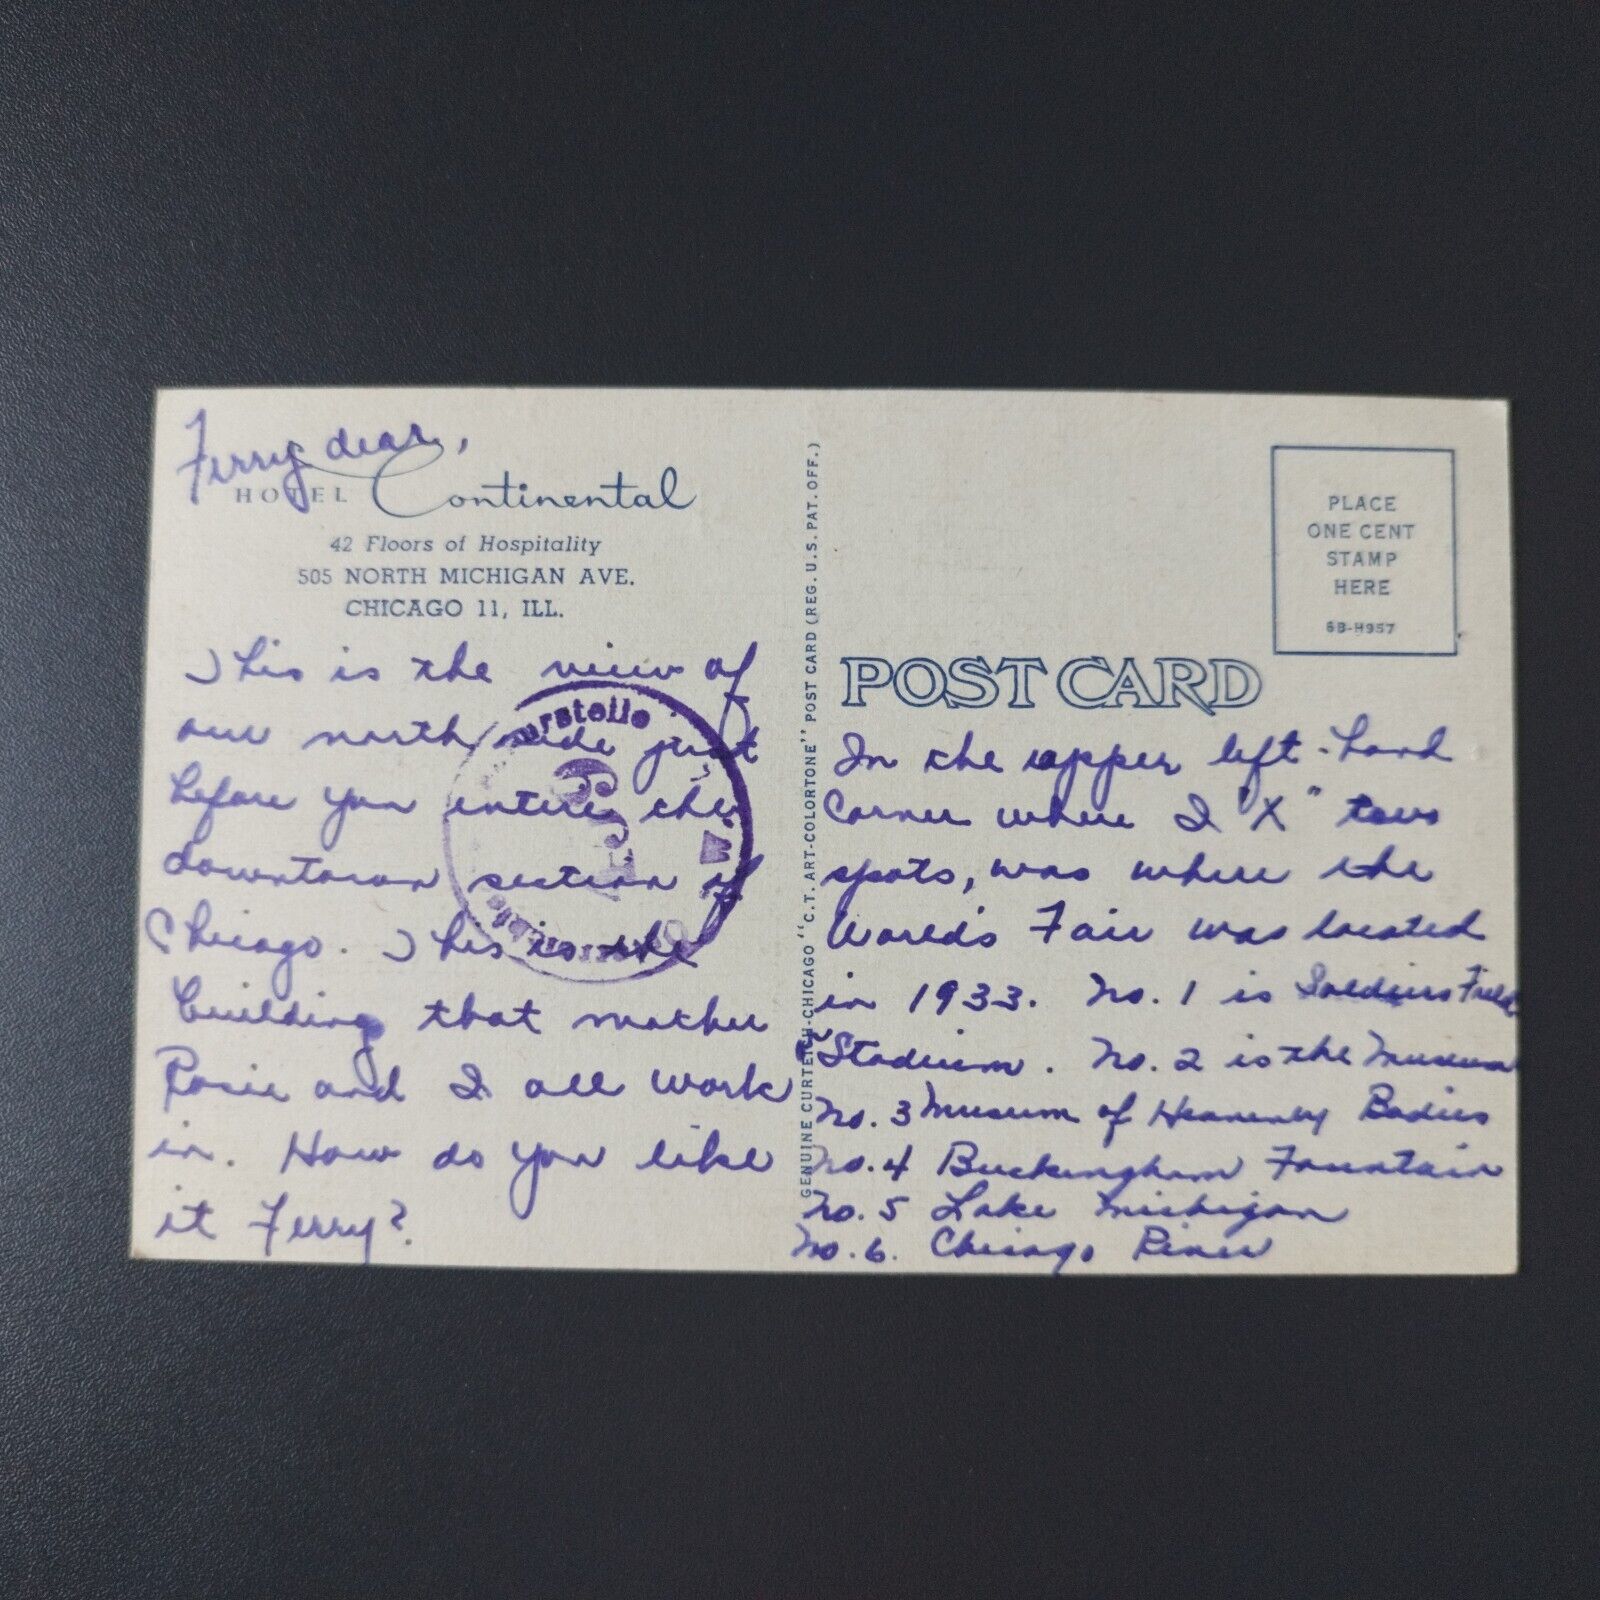 Ferry dear,
HOTEL Continental
42 Floors of Hospitality
505 NORTH MICHIGAN AVE.
CHICAGO 11, ILL.
This is the view of
our north side just
before you enter the
downtown section of
Chicago. This is the
building that mother
Rosie and I all work
in. How do you like
it Ferry?
GENUINE CURTEICH-CHICAGO "C.T. ART-COLORTONE" POST CARD (REG. U.S. PAT. OFF.)
PLACE
ONE CENT
STAMP
HERE
6B-H957
POST CARD
In the upper left-hand
corner where I "X" two
spots, was where the
World's Fair was located
in 1933. No. 1 is Soldiers Field
Stadium. No. 2 is the Museum
No. 3 Museum of Heavenly Bodies
No. 4 Buckingham Fountain
No. 5 Lake Michigan
No. 6. Chicago River